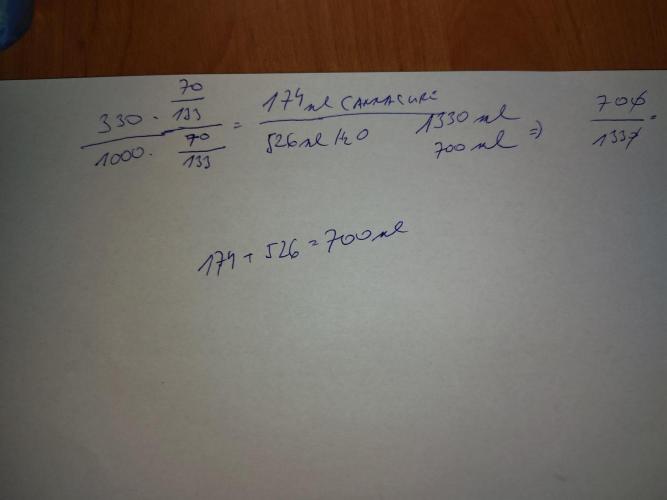 330 · 70/133 / 1000 · 70/133 = 174 ml / 526 ml H2O
1330 ml
700 ml => 700/1330 =
174 + 526 = 700 ml